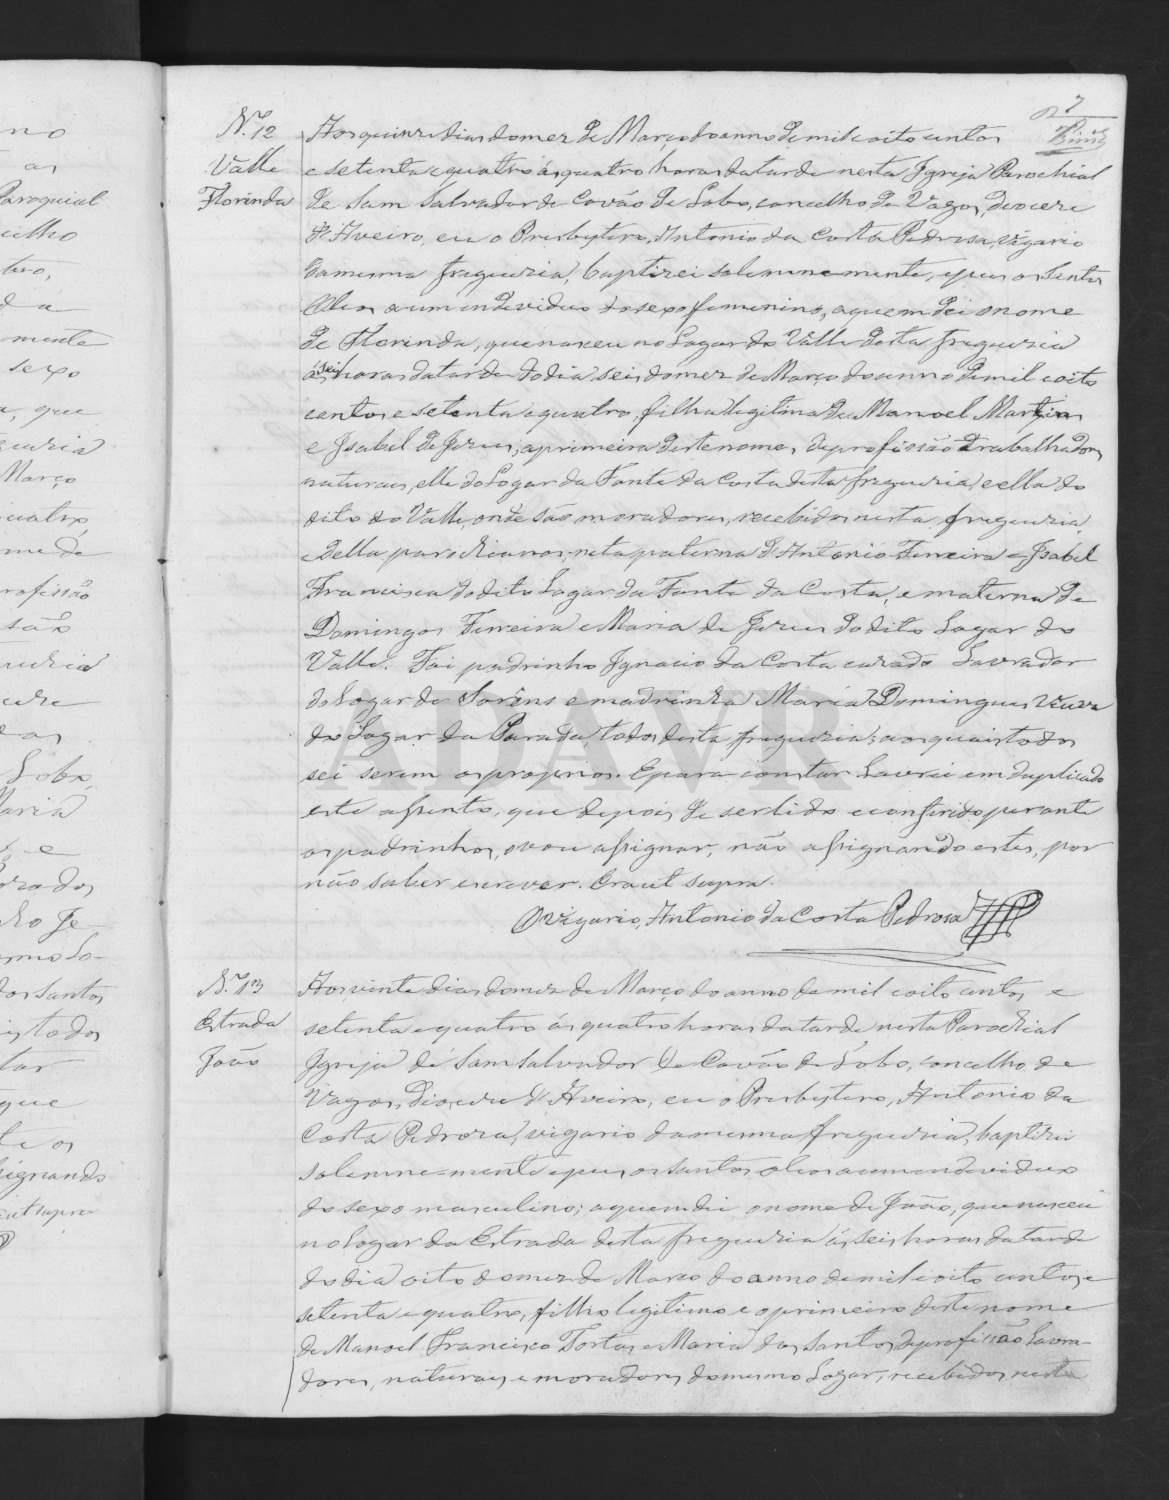 7
N.º 12
Valle
Florinda
Aos quinze dias do mez de Março do anno de mil e oito centos
e setenta e quatro ás quatro horas da tarde nesta Igreja Parochial
de Sam Salvador de Covão de Lobo, concelho de Vagos, Diocese
d'Aveiro, eu o Presbytero, Antonio da Costa Pedrosa, Vigario
da mesma freguezia, baptizei solemne-mente, e pus os Santos
Oleos a um individuo do sexo femenino, a quem dei o nome
de Florinda, que nasceu no Logar do Valle desta freguezia
ás seis horas da tarde do dia seis do mez de Março do anno de mil e oito
centos e setenta e quatro, filha legitima de Manoel Martins
e Isabel de Jezus, a primeira deste nome, de profissão trabalhadores,
naturaes, elle do Logar da Fonte da Costa desta freguezia, e ella do
dito do Valle, onde são moradores, recebidos nesta freguezia,
e della parochianos, neta paterna d'Antonio Ferreira e Isabel
Francisca do dito Logar da Fonte da Costa, e materna de
Domingos Ferreira e Maria de Jezus do dito Logar do
Valle. Foi padrinho Ignacio da Costa cazado Lavrador
do Logar de Sorêns e madrinha Maria Domingues Viuva
do Logar da Parada todos desta freguezia; aos quais todos
sei serem os proprios. E para constar lavrei em duplicado
este assento, que depois de ser lido e conferido perante
os padrinhos, o vou assignar, não assignando estes, por
não saber escrever. Era ut supra.
O Vigario, Antonio da Costa Pedrosa
N.º 13
Estrada
João
Aos vinte dias do mez de Março do anno de mil e oito centos e
setenta e quatro ás quatro horas da tarde nesta Parochial
Igreja de Sam Salvador de Covão de Lobo, concelho de
Vagos, Diocese d'Aveiro, eu o Presbytero, Antonio da
Costa Pedrosa, vigario da mesma freguezia, baptizei
solemne-mente e pus os santos oleos a um individuo
do sexo masculino; a quem dei o nome de João, que nasceu
no Logar da Estrada desta freguezia ás seis horas da tarde
do dia oito do mez de Março do anno de mil e oito centos, e
setenta e quatro, filho legitimo e o primeiro deste nome
de Manoel Francisco Tortas e Maria dos Santos, de profissão Lavra-
dores, naturaes e moradores do mesmo Logar, recebidos nesta
ADAVR